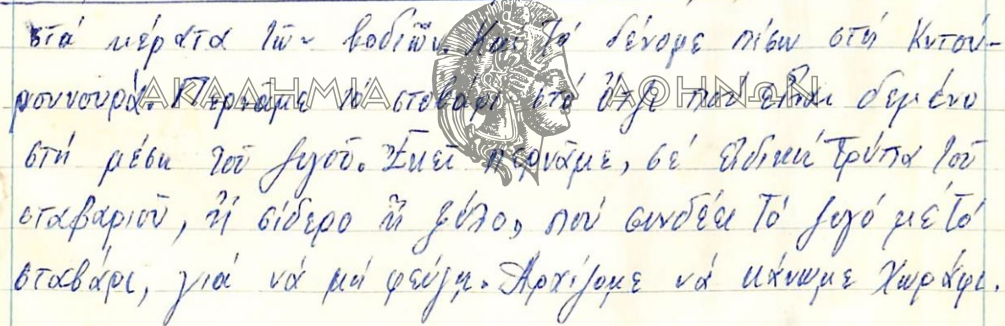 στά κέρατα τῶν βοδιῶν. Καί τά δένομε πίσω στή
Περνᾶμε τό σταβάρι στό πού εἶναι δεμένο
στή μέση τοῦ ζυγοῦ. Ἐκεῖ περνᾶμε, σέ εἰδική τρύπα τοῦ
σταβαριοῦ, ἤ σίδερο ἤ ξύλο, πού συνδέει τό ζυγό μέ τό
σταβάρι, γιά νά μή φεύγῃ. Ἀρχίζομε νά κάνωμε χωράφι.
ΑΚΑΔΗΜΙΑ ΑΘΗΝΩΝ